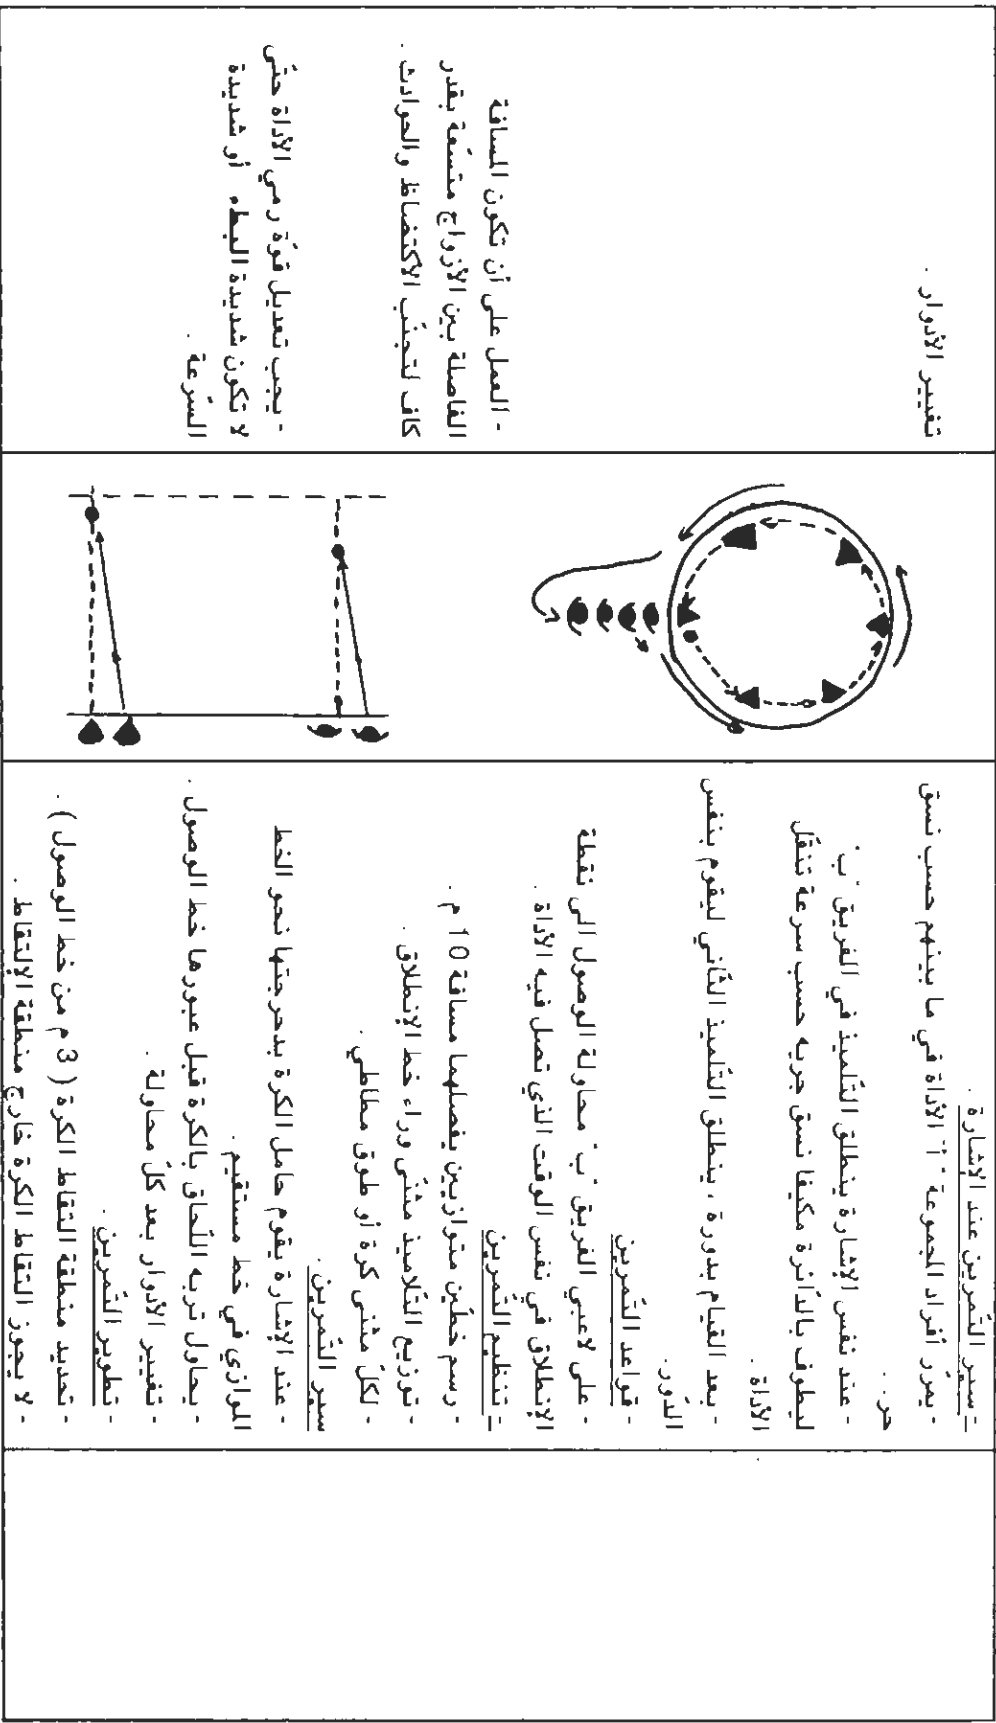 - سير التّمرين عند الإشارة .
- يمرّر أفراد المجموعة "أ" الأداة في ما بينهم حسب نسق
حر . .
- عند نفس الإشارة ينطلق التّلميذ في الفريق "ب"
ليطوف بالدّائرة مكيفا نسق جريه حسب سرعة تنقّل
الأداة .
- بعد القيام بدورة ، ينطلق التّلميذ الثّاني ليقوم بنفس
الدّور .
- قواعد التّمرين
- على لاعبي الفريق "ب" محاولة الوصول الى نقطة
الإنطلاق في نفس الوقت الذي تصل فيه الأداة .
- تنظيم التّمرين
- رسم خطّين متوازيين يفصلهما مسافة 10 م .
- توزيع التّلاميذ مثنّى وراء خط الإنطلاق .
- لكلّ مثنّى كرة أو طوق مطّاطي .
سير التّمرين .
- عند الإشارة يقوم حامل الكرة بدحرجتها نحو الخط
الموازي في خط مستقيم .
- يحاول تربه اللّحاق بالكرة قبل عبورها خط الوصول .
- تغيير الأدوار بعد كلّ محاولة .
- تطوير التّمرين .
- تحديد منطقة التقاط الكرة ( 3 م من خط الوصول ) .
- لا يجوز التقاط الكرة خارج منطقة الإلتقاط .
تغيير الأدوار .
- العمل على أن تكون المسافة
الفاصلة بين الأزواج متسّعة بقدر
كاف لتجنّب الاكتضاظ والحوادث .
- يجب تعديل قوّة رمي الأداة حتّى
لا تكون شديدة البطء أو شديدة
السّرعة .